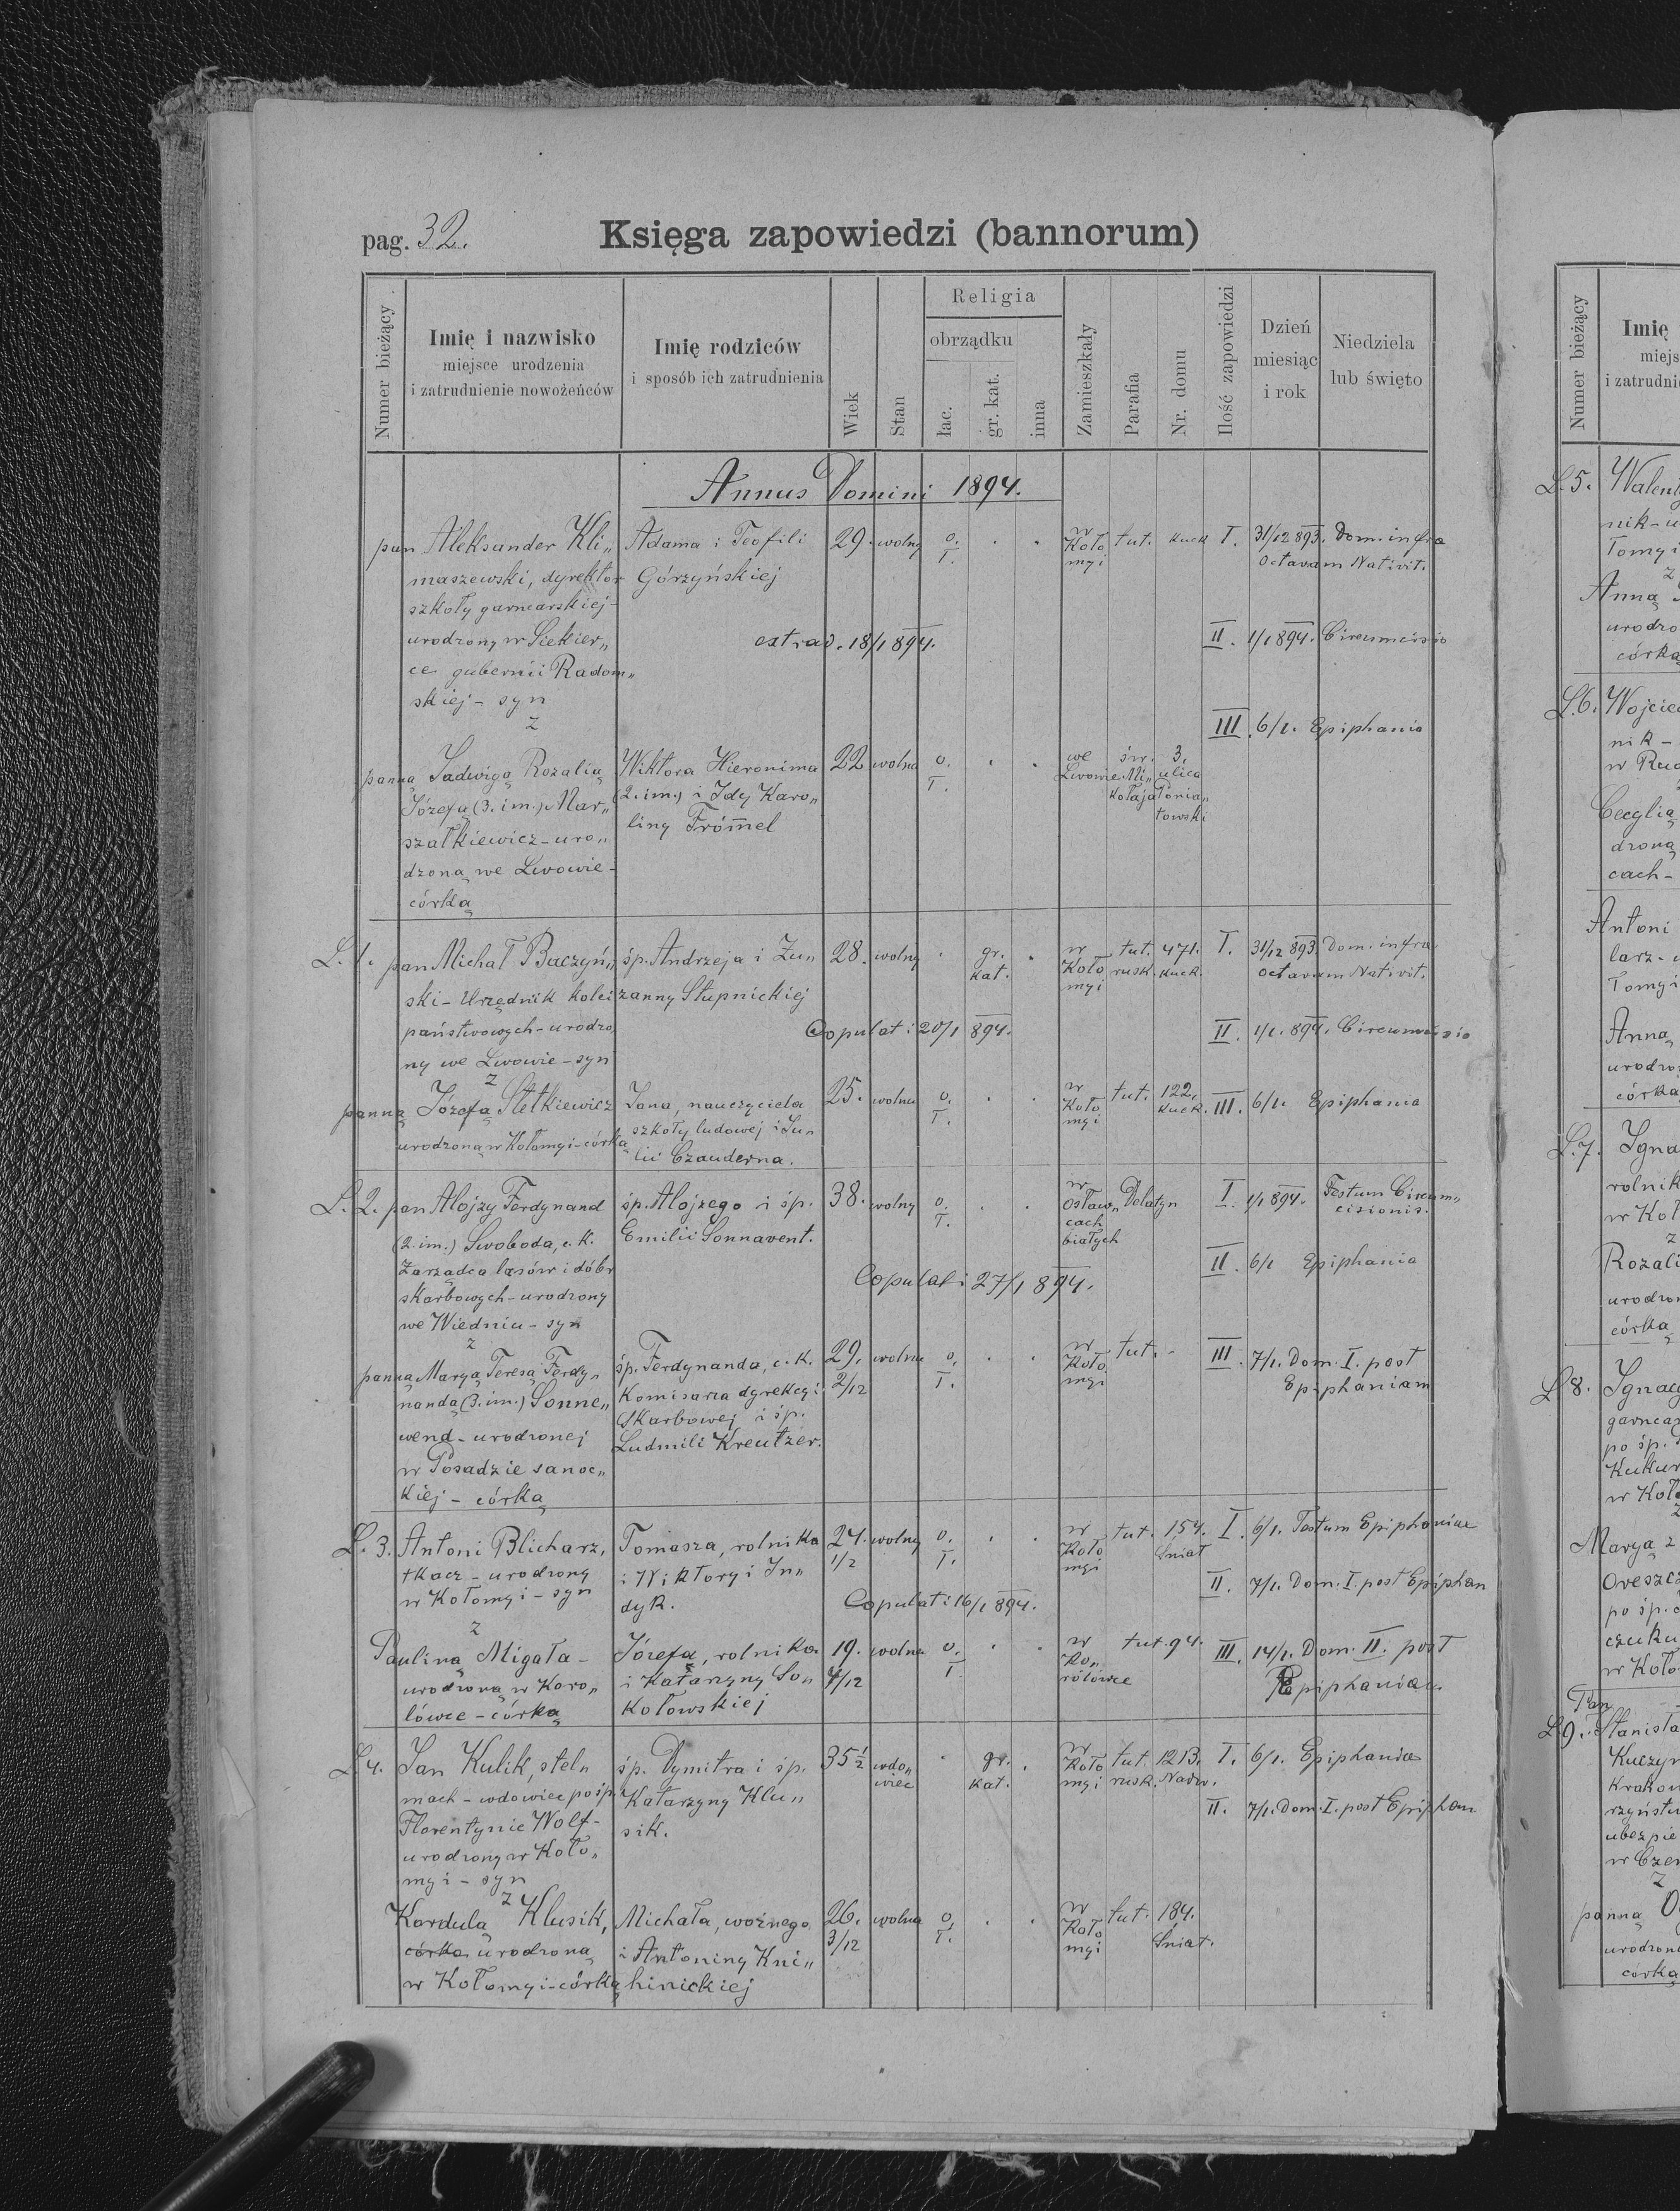 pag. 32.
Księga zapowiedzi (bannorum)
Numer bieżący
Imię i nazwisko
miejsce urodzenia
i zatrudnienie nowożeńców
Imię rodziców
i sposób ich zatrudnienia
Wiek
Stan
Religia
obrządku
łac.
gr. kat.
inna
Zamieszkały
Parafia
Nr. domu
Ilość zapowiedzi
Dzień
miesiąc
i rok
Niedziela
lub święto
Annus Domini 1894.
pan Aleksander Kli„
maszewski, dyrektor
szkoły garncarskiej-
urodzony w Siekier„
ce gubernii Radom„
skiej - syn
z
Adama i Teofili
Górzyńskiej
29. wolny o. ł.
w Koło myi
tut. Kuck
I. 31/12 893. Dom. infra
octavam Nativit.
extrad. 18/1 894.
II. 1/1 894. Circumcisio
III. 6/1. Epiphania
panną Jadwigą Rozalią
Józefą (3. im.) Mar„
szałkiewicz - uro„
dzoną we Lwowie -
córką
Wiktora Hieronima
(2. im.) i Idy Karo„
liny Frömel
22 wolna o. ł.
we Lwowie
św. Mi„
kołaja
3. ulica
Ponia„
towski
L. 1. pan Michał Buczyń„
ski - Urzędnik kolei
państwowych - urodzo
ny we Lwowie - syn
z
śp. Andrzeja i Zu„
zanny Słupnickiej
28. wolny gr. kat.
w Koło myi
tut. rusk.
471. Kuck.
I. 31/12 893. Dom. infra
octavam Nativit.
Copulati 20/1 894.
II. 1/1. 894. Circumcisio
panną Józefą Stetkiewicz
urodzoną w Kołomyi - córką
Jana, nauczyciela
szkoły ludowej i Ju„
lii Czauderna.
25. wolna o. ł.
w Koło myi
tut. 122. Kuck.
III. 6/1. Epiphania
L. 2. pan Alojzy Ferdynand
(2. im.) Swoboda, c. K.
Zarządca lasów i dóbr
skarbowych - urodzony
we Wiedniu - syn
z
śp. Alojzego i śp.
Emilii Sonnavent.
38. wolny o. ł.
w Osław„
cach
białych
Delatyn
I. 1/1 894. Festum Circum„
cisionis.
II. 6/1 Epiphania
Copulati 27/1 894.
panną Maryą Teresą Ferdy„
nandą (3. im.) Sonne„
wend - urodzonej
w Posadzie sanoc„
kiej - córką
śp. Ferdynanda, c. K.
Komisarza dyrekcyi
Skarbowej i śp.
Ludmili Kreutzer.
29. 2/12 wolna o. ł.
w Koło myi
tut. -
III. 7/1. Dom. I. post
Epiphaniam
L. 3. Antoni Blicharz,
tkacz - urodzony
w Kołomyi - syn
z
Tomasza, rolnika
i Wiktoryi In„
dyk.
24. 1/2 wolny o. ł.
w Koło myi
tut. 154. Śniat
I. 6/1. Festum Epiphaniae
II. 7/1. Dom. I. post Epiphan
Copulati 16/1 894.
Pauliną Migała -
urodzoną w Koro„
lówce - córką
Józefa, rolnika
i Katarzyny So„
kołowskiej
19. 4/12 wolna o. ł.
w Ko„
rolówce
tut. 94.
III. 14/1. Dom. II. post
Epiphaniam
L. 4. Jan Kulik, stel„
mach - wdowiec po śp.
Florentynie Wolf -
urodzony w Koło„
myi - syn
z
śp. Dymitra i śp.
Katarzyny Klu„
sik.
35 1/2 wdo„
wiec
gr. kat.
w Koło myi
tut. rusk.
1213. Nadw.
I. 6/1. Epiphania
II. 7/1. Dom. I. post Epiphan
Kordulą Klusik,
córka urodzoną
w Kołomyi - córką
Michała, woźnego
i Antoniny Kni„
hinickiej
26. 3/12 wolna o. ł.
w Koło myi
tut. 184. Śniat.
Numer bieżący
Imię
miejs
i zatrudnie
L. 5.
nik - u
Tomyi
z
Anną
urodzo
córką
L. 6. Wojciec
nik -
w Rud
Cecylią
droną
cach -
Antoni
larz - u
Tomyi
Anną
urodzo
córką
L. 7. Igna
rolnik
w Koł
z
Rozali
urodzon
córką
L. 8. Ignacy
garncar
po śp.
Kukur
w Koło
z
Maryą z
Oreszcz
po śp.
czuku
w Koło
Pan
L. 9. Stanisła
Kuczyn
Krakow
rzyństw
ubezpie
w Czer
z
panną
urodzoną
córką